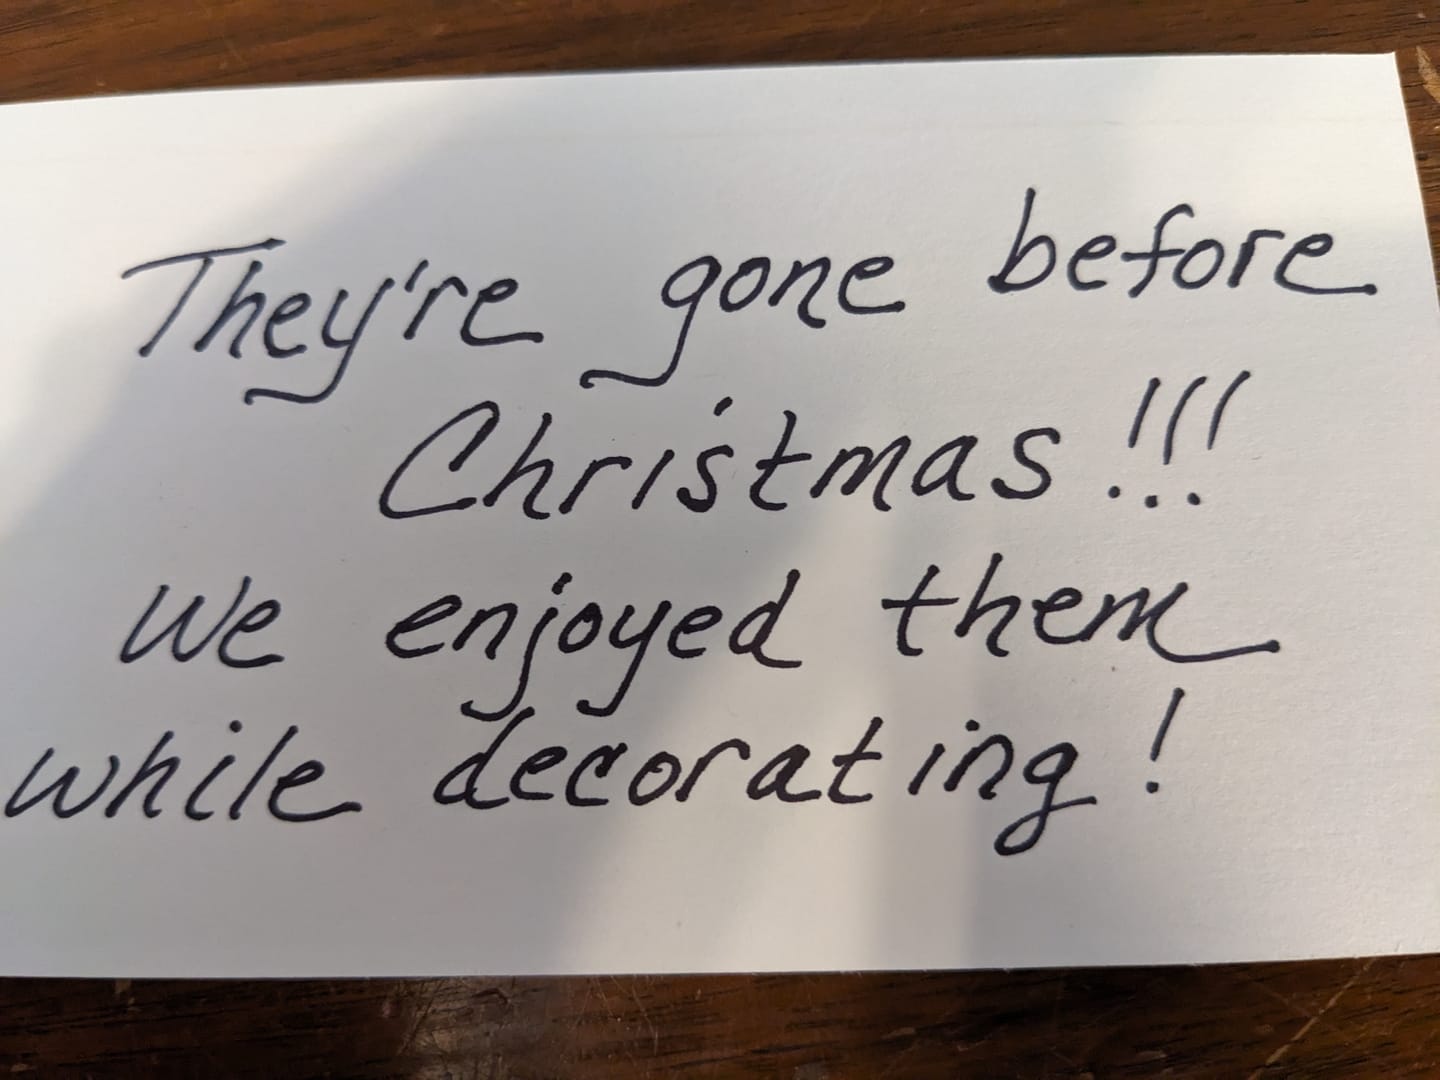 They're gone before
Christmas!!!
We enjoyed them
while decorating!